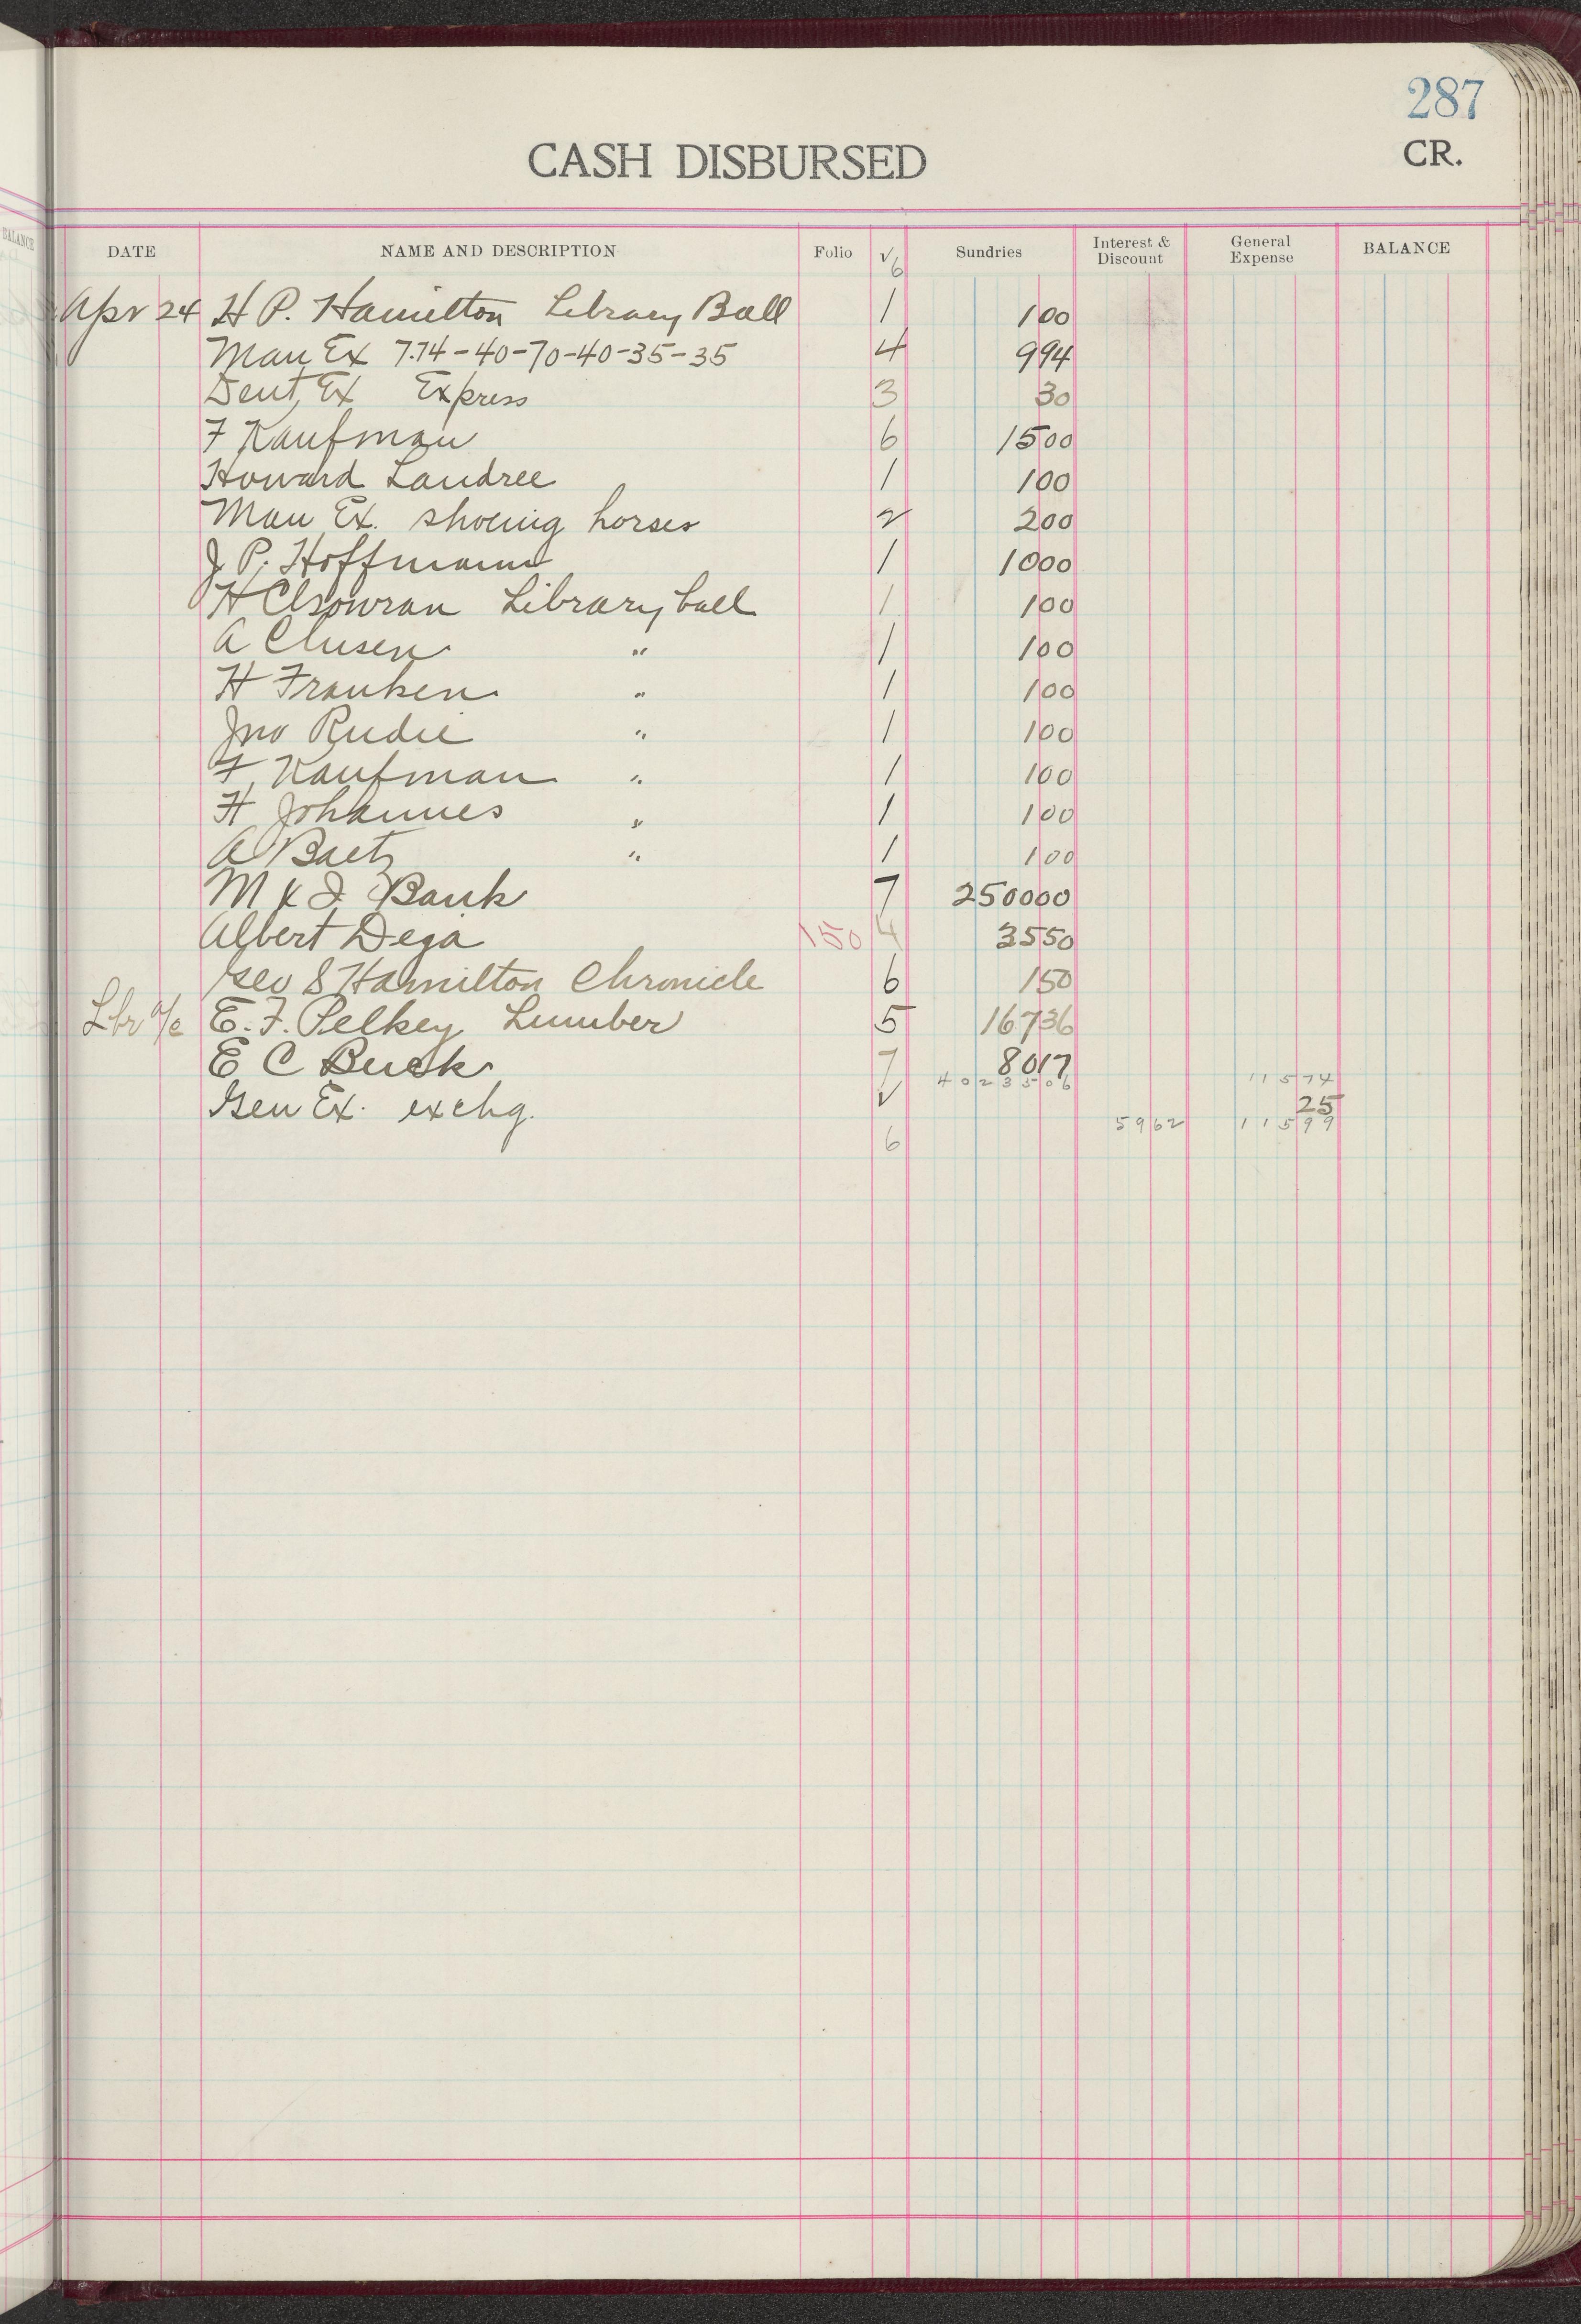 287
CASH DISBURSED
CR.
BALANCE
DATE NAME AND DESCRIPTION Folio √ Sundries Interest & Discount General Expense BALANCE
6
Apr 24 H P. Hamilton Library Ball 1 1 00
Man Ex 7.74-40-70-40-35-35 4 9 94
Dent, Ex Express 3 30
F Kaufman 6 15 00
Howard Landree 1 1 00
Man Ex. shoeing horses 2 2 00
J P. Hoffmann 1 10 00
H Library ball 1 1 00
A Clusen " 1 1 00
H Franken " 1 1 00
Jno Rudie " 1 1 00
F. Kaufman " 1 1 00
H Johannes " 1 1 00
A Baetz " 1 1 00
M & I Bank 7 2500 00
Albert Dega 150 4 35 50
Geo S Hamilton Chronicle 6 1 50
Lbr a/c E. F. Pelkey Lumber 5 167 36
E C Buck 7 80 17
40235 06 115 74
Gen Ex. exchg. √ 25
59 62 115 99
6